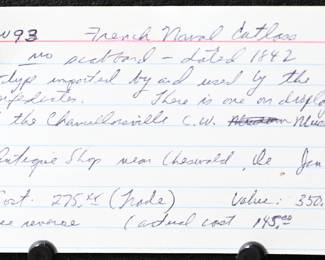 W93 French Naval Cutlass
no scabbard - dated 1842
type imported by and used by the
nfederates. There is one on display
the Chancellorsville C.W. Mus
Antique Shop near Cheswold, De Jan
Cost. 275.00 (Trade) Value: 350.
ee reverse (actual cost 145.00